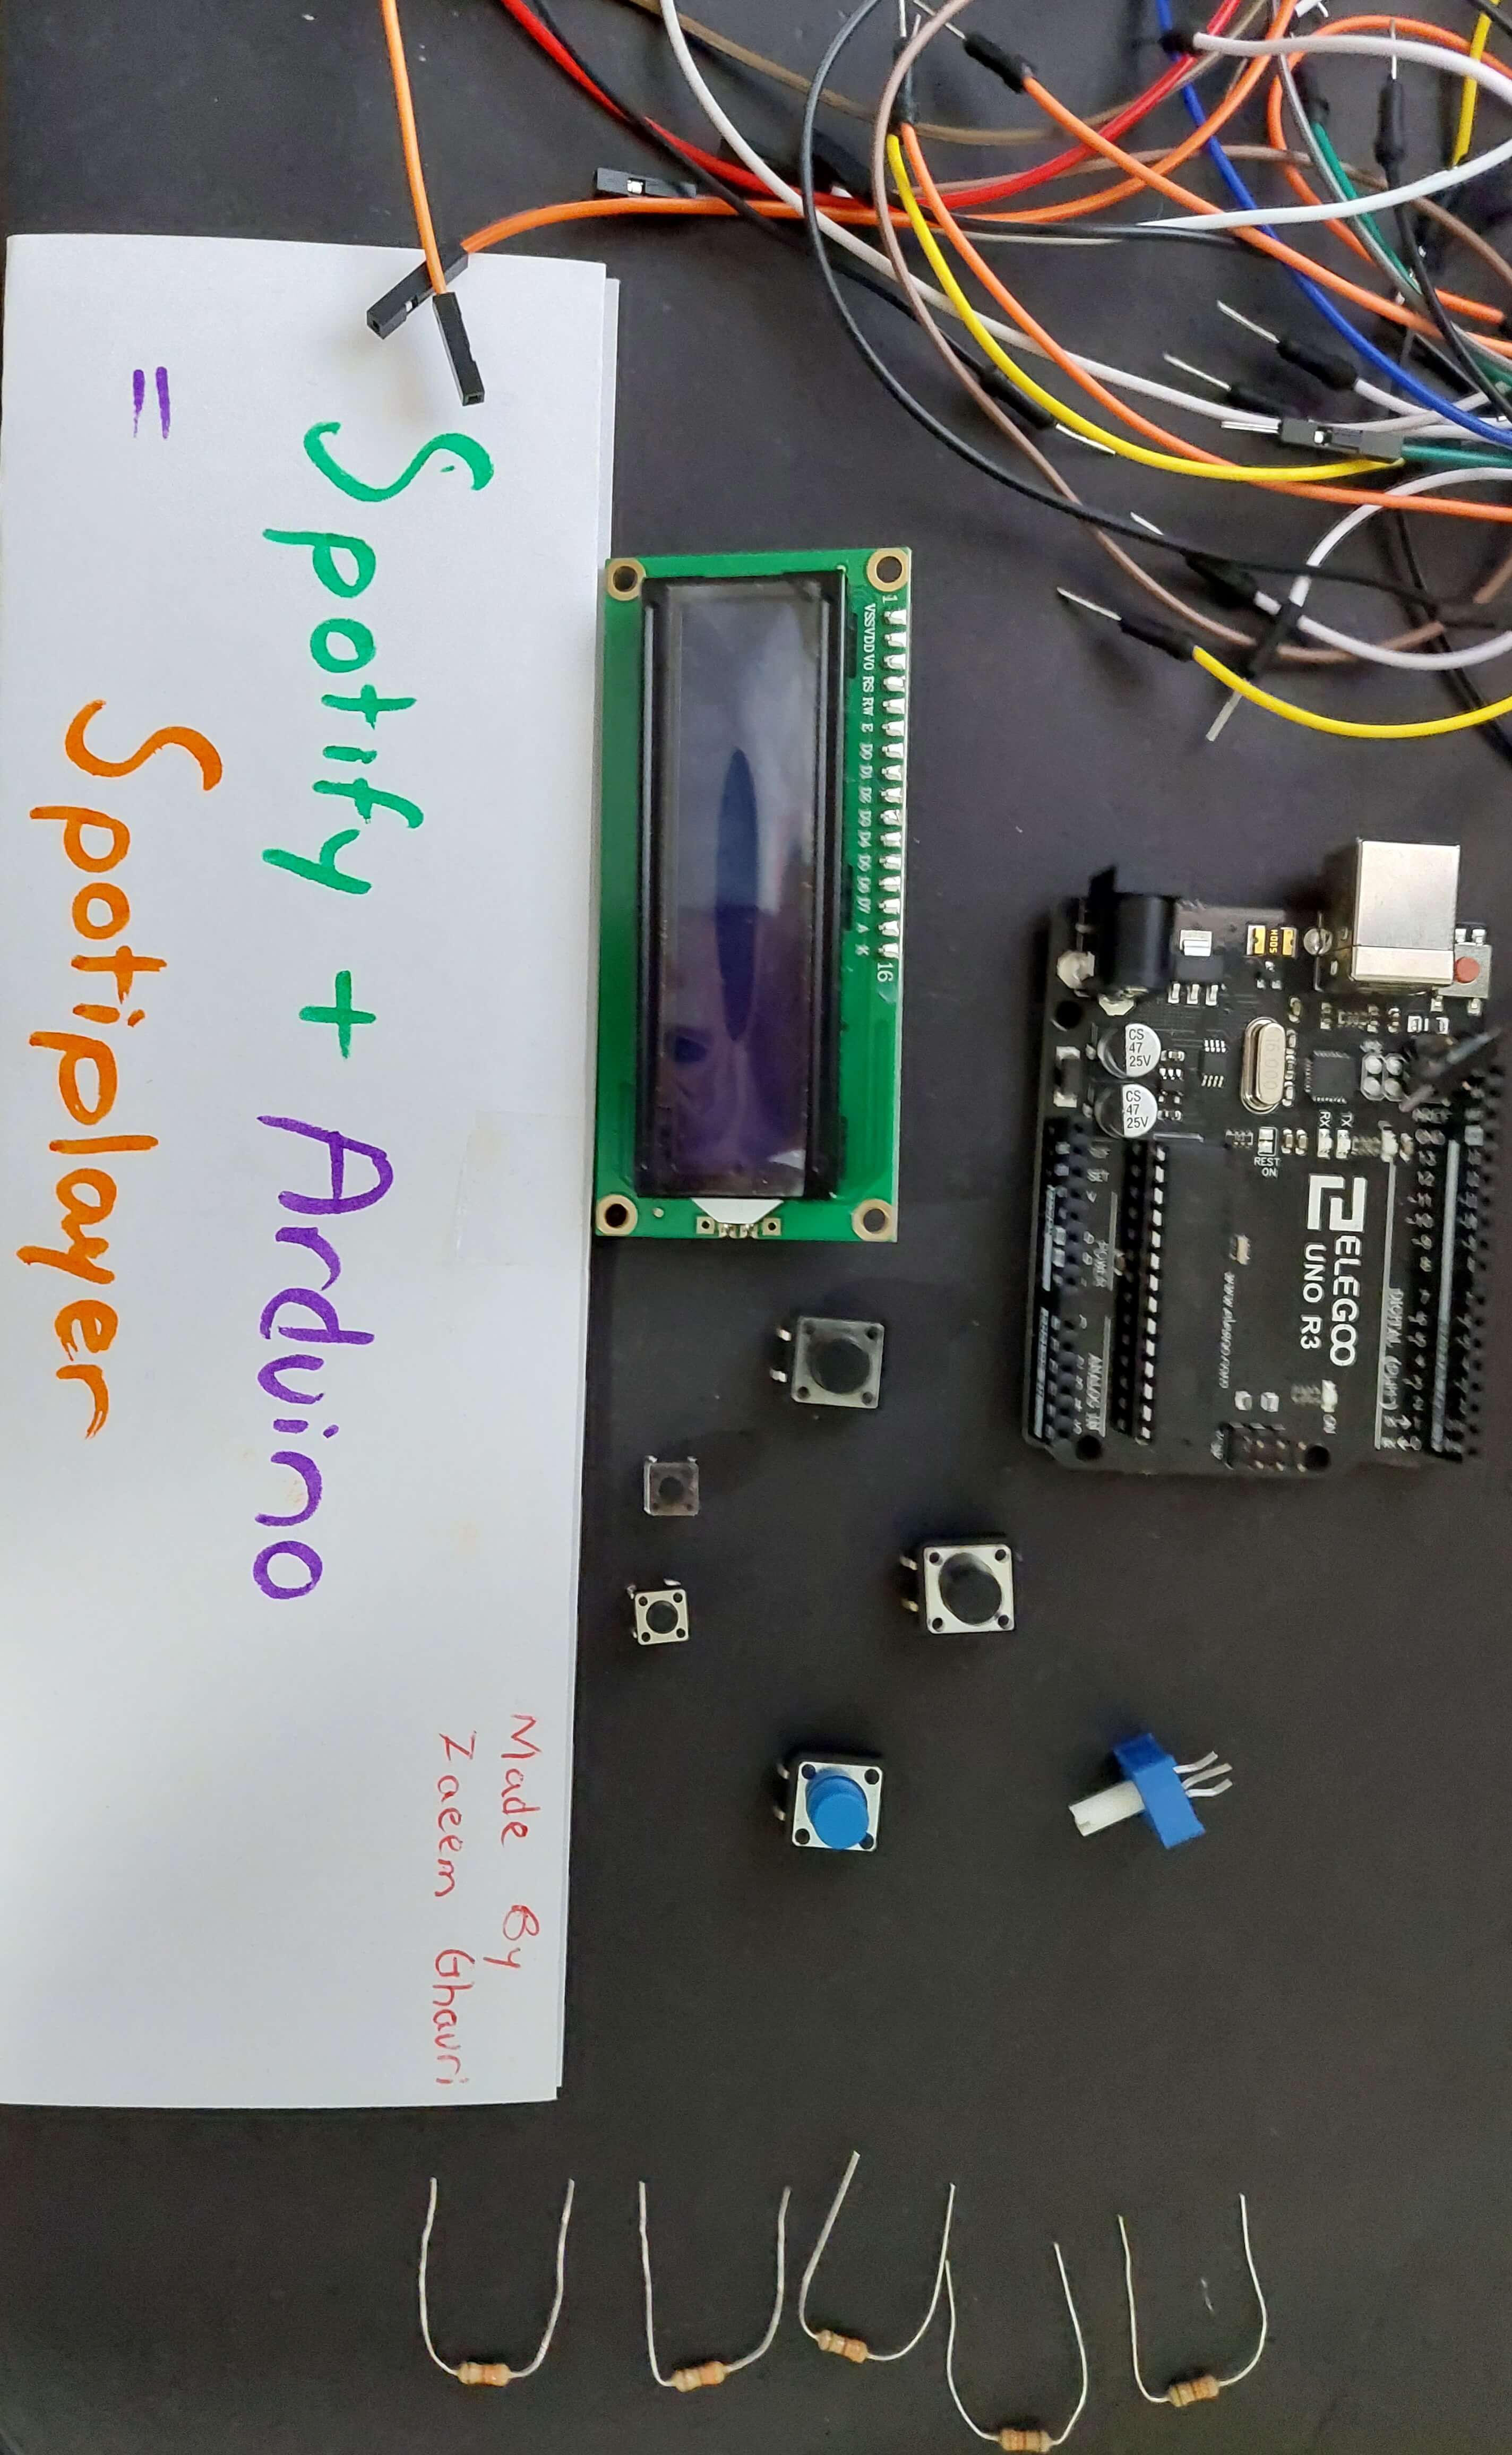 DIGITAL (PWM~)
TX
RX
ELEGOO
UNO R3
ON
16.000
www.elegoo.com
CS
47
25V
CS
47
25V
POWER
ANALOG IN
1
16
VSS VDD V0 RS RW E D0 D1 D2 D3 D4 D5 D6 D7 A K
Made By
Zaeem Ghauri
Spotify + Arduino
= Spotiplayer